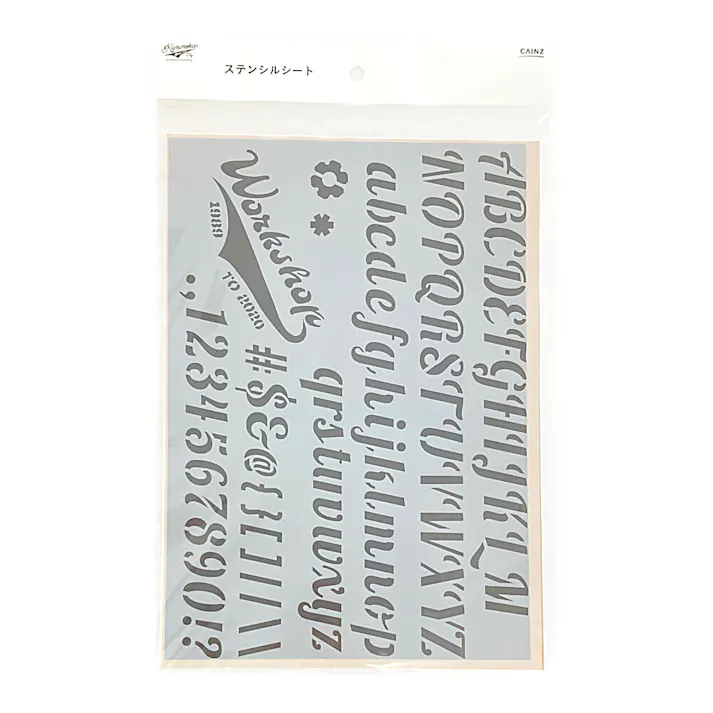 CAINZ
ステンシルシート
ABCDEFGHIJKLM
NOPQRSTUVWXYZ
abcdefghijklmnop
qrstuvwxyz
Workshop
1989
TO 2020
#$&@{}[]/\
.,1234567890!?